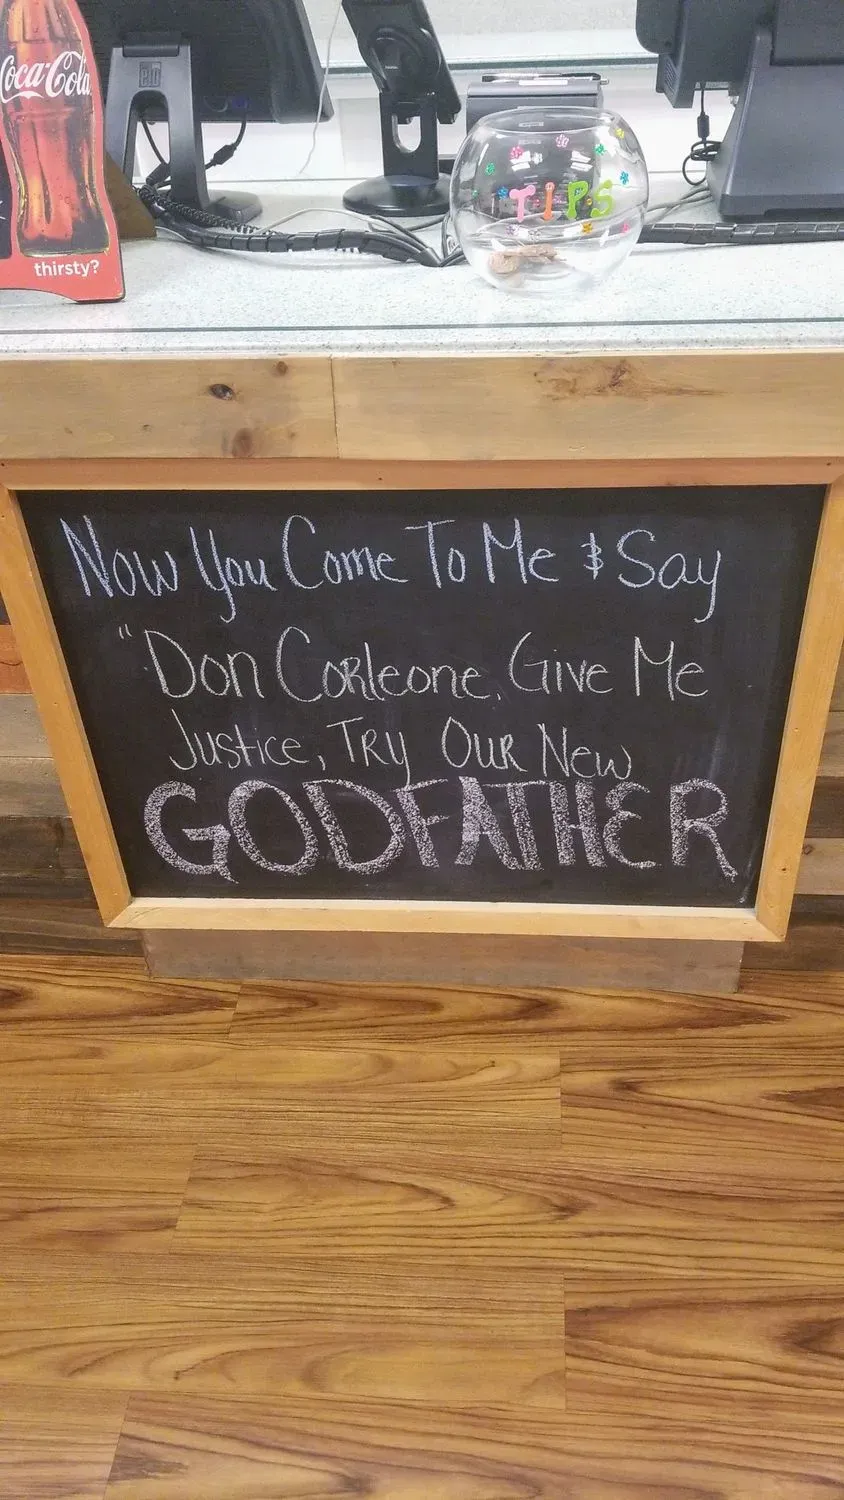 Coca-Cola
thirsty?
TIPS
Now You Come To Me & Say
"Don Corleone, Give Me
Justice, Try Our New
GODFATHER